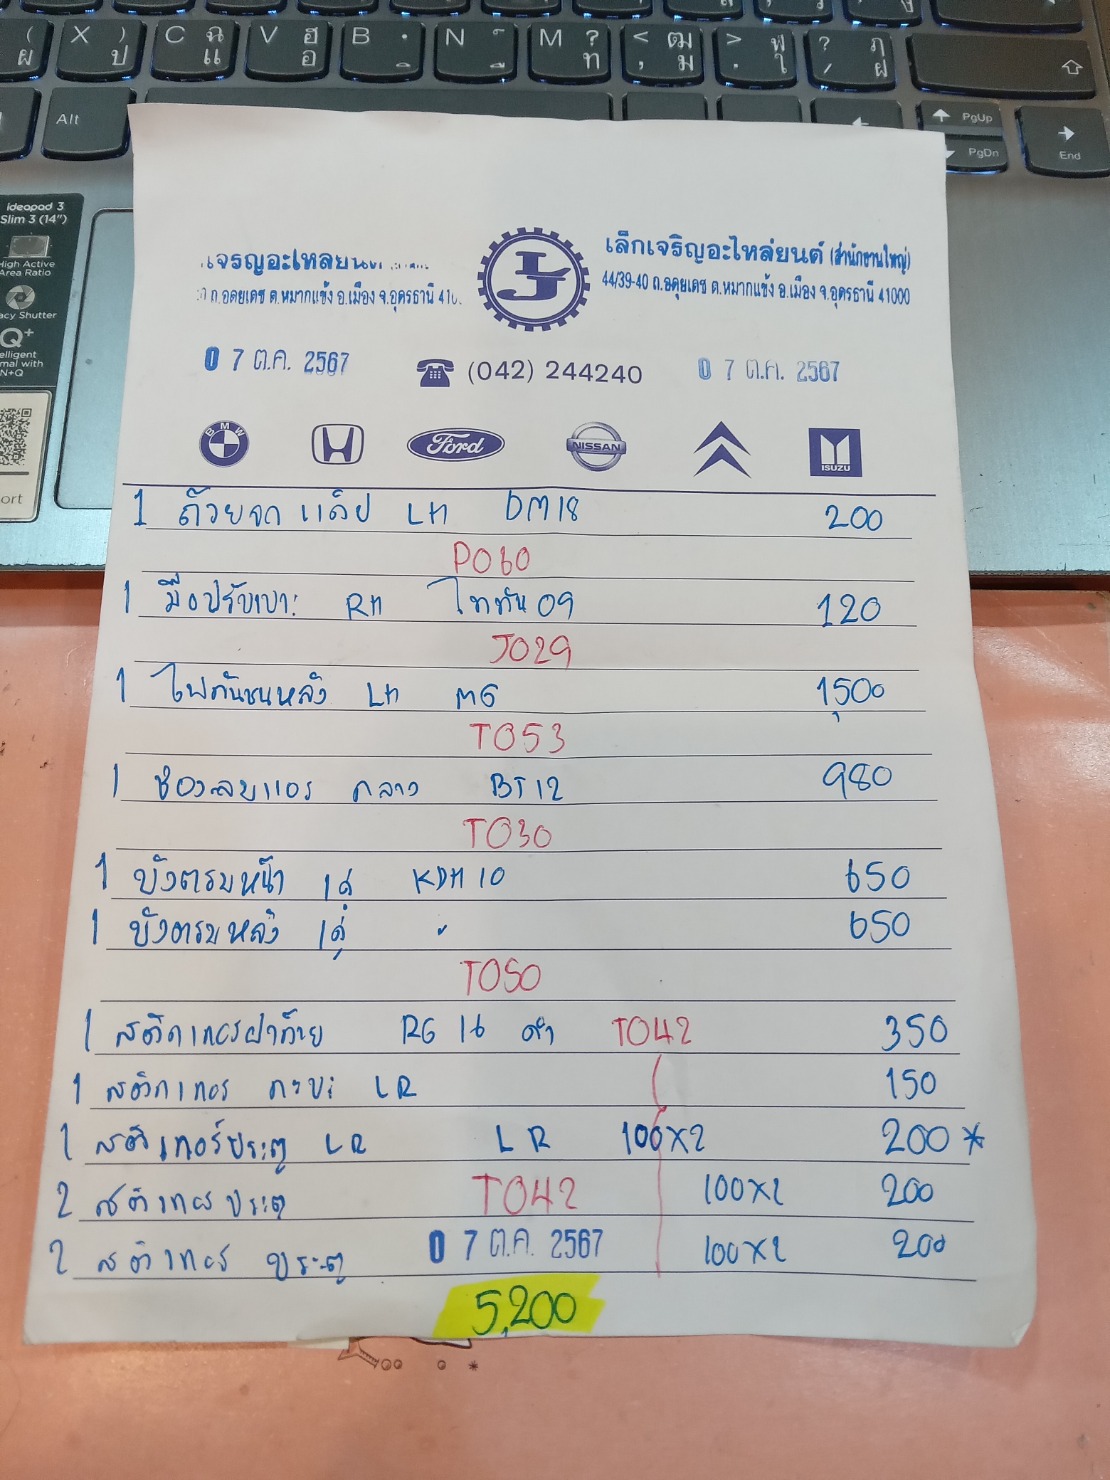 ideapad 3
Slim 3 (14")
High Active
Area Ratio
acy Shutter
Q+
elligent
mal with
N+Q
ort
X
C
V
B
N
M
Alt
PgUp
PgDn
End
เล็กเจริญอะไหล่ยนต์ (สำนักงานใหญ่)
44/39-40 ถ.อดุยเดช ต.หมากแข้ง อ.เมือง จ.อุดรธานี 41000
เจริญอะไหล่ยนต์
ถ.อดุยเดช ต.หมากแข้ง อ.เมือง จ.อุดรธานี 410
07 ต.ค. 2567
(042) 244240
07 ต.ค. 2567
BMW
Ford
NISSAN
ISUZU
1 ถ้วยจุก แค็ป LH DM18 200
P060
1 มือปรับเบาะ RH ไททัน 09 120
J029
1 ไฟกันชนหลัง LH MG 1,500
T053
1 ช่องลมแอร์ กลาง BT12 980
T030
1 บังตรมหน้า 1คู่ KDH10 650
1 บังตรมหลัง 1คู่ " 650
T050
1 สติกเกอร์ฝาท้าย RG 16 ดำ T042 350
1 สติกเกอร์ กะบะ LR 150
1 สติกเกอร์ประตู LR LR 100x2 200 *
2 สติกเกอร์ ประตู T042 100x2 200
2 สติกเกอร์ ประตู 07 ต.ค. 2567 100x2 200
5,200